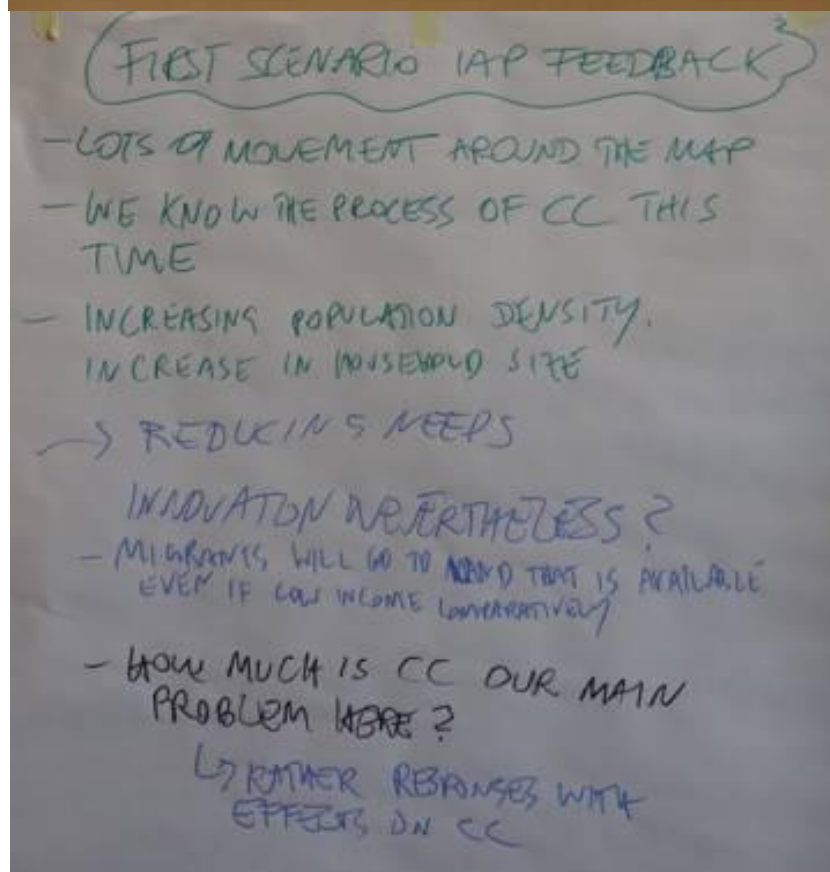 FIRST SCENARIO IAP FEEDBACK
- LOTS OF MOVEMENT AROUND THE MAP
- WE KNOW THE PROCESS OF CC THIS
TIME
- INCREASING POPULATION DENSITY.
INCREASE IN HOUSEHOLD SIZE
→ REDUCING NEEDS
INNOVATION NEVERTHELESS?
- MIGRANTS WILL GO TO LAND THAT IS AVAILABLE
EVEN IF LOW INCOME COMPARATIVELY
- HOW MUCH IS CC OUR MAIN
PROBLEM HERE?
↳ RATHER RESPONSES WITH
EFFECTS ON CC